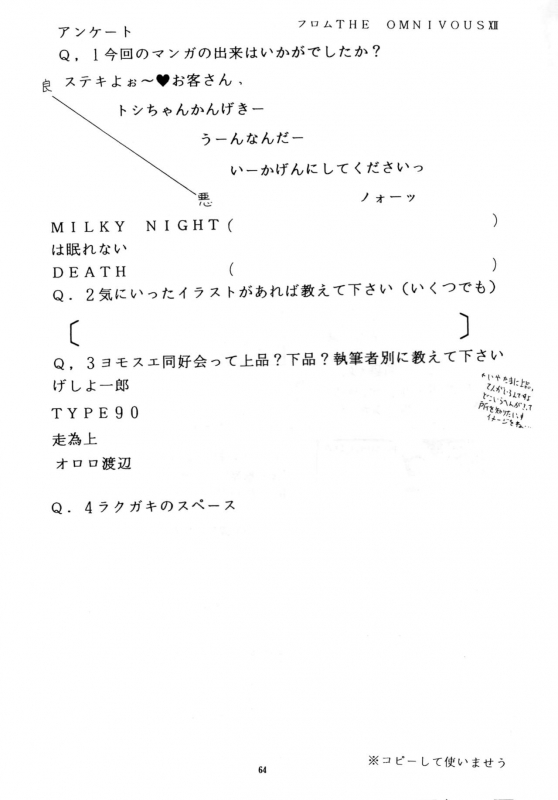 アンケート
フロムTHE OMNIVOUSⅫ
Q，1今回のマンガの出来はいかがでしたか？
良
ステキよぉ～♥お客さん、
トシちゃんかんげきー
うーんなんだー
いーかげんにしてくださいっ
悪
ノォーッ
MILKY NIGHT（ ）
は眠れない
DEATH （ ）
Q．2気にいったイラストがあれば教えて下さい（いくつでも）
〔 〕
Q，3ヨモスエ同好会って上品？下品？執筆者別に教えて下さい
げしよ一郎
TYPE90
走為上
オロロ渡辺
所を知りたいです
イメージをね…
Q．4ラクガキのスペース
※コピーして使いませう
64